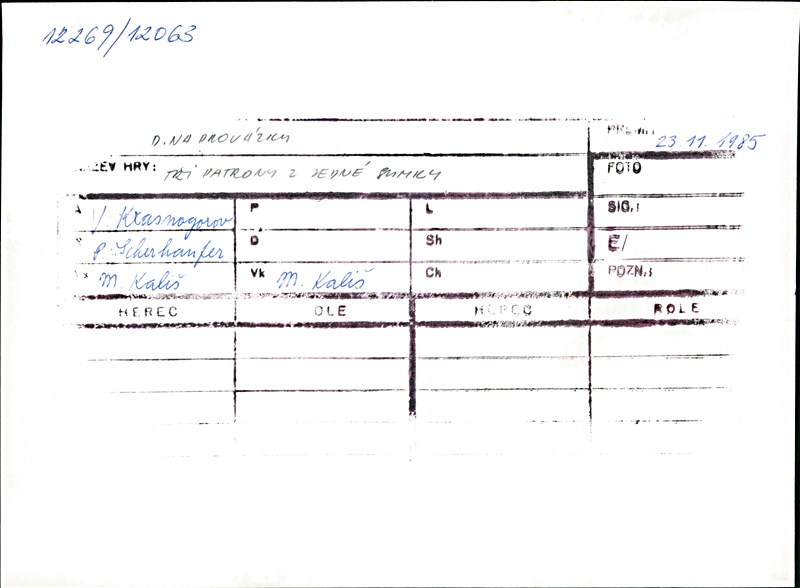 12269/12063
D. NA PROVÁZKU
23.11.1985
ZEV HRY: TŘI PATRONY Z JEDNÉ PUMKY
FOTO
V. Krasnogorov P L SIG.:
P. Scherhaufer D Sh E/
M. Kališ Vk M. Kališ Ch POZN.:
HEREC OLE HEREC ROLE